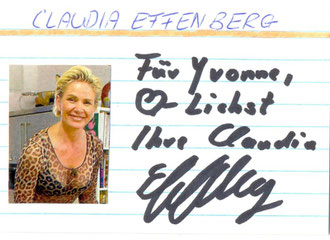 CLAUDIA EFFENBERG
Für Yvonne,
♡ Lichst
Ihre Claudia
Effenberg